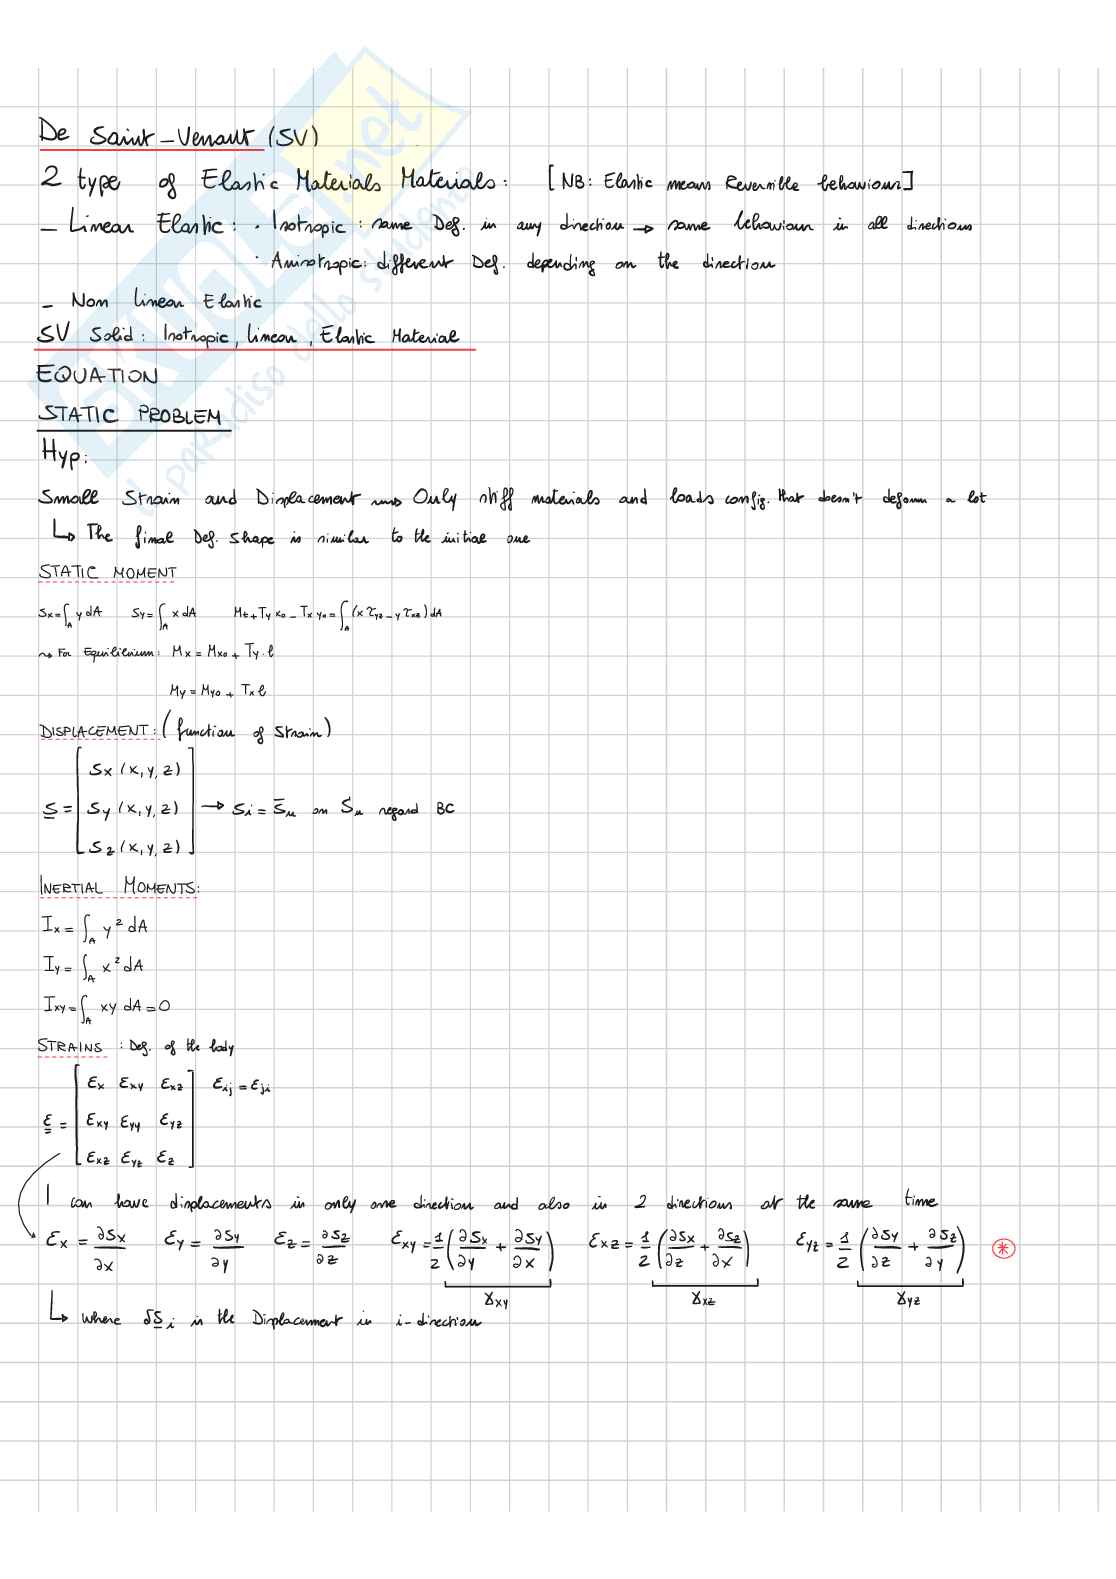 De Saint-Venant (SV)
2 type of Elastic Materials Materials: [NB: Elastic means Reversible behaviour]
- Linear Elastic: · Isotropic: same Def. in any direction → same behaviour in all directions
· Anisotropic: different Def. depending on the direction
- Non linear Elastic
SV Solid: Isotropic, linear, Elastic Material
EQUATION
STATIC PROBLEM
Hyp:
Small Strain and Displacement ⟿ Only stiff materials and loads config. that doesn't deform a lot
↳ The final Def. Shape is similar to the initial one
STATIC MOMENT
Sx = ∫_A y dA   Sy = ∫_A x dA   Mt + Ty x₀ - Tx y₀ = ∫_A (x τyz - y τxz) dA
⤳ For Equilibrium: Mx = Mx₀ + Ty · l
My = My₀ + Tx l
DISPLACEMENT: (function of Strain)
S = [ Sx (x, y, z)
Sy (x, y, z)
Sz (x, y, z) ] → Si = S̄u on Su regard BC
INERTIAL MOMENTS:
Ix = ∫_A y² dA
Iy = ∫_A x² dA
Ixy = ∫_A xy dA = 0
STRAINS: Def. of the body
ε = [ εx εxy εxz   εij = εji
εxy εyy εyz
εxz εyz εz ]
I can have displacements in only one direction and also in 2 directions at the same time
εx = ∂Sx/∂x   εy = ∂Sy/∂y   εz = ∂Sz/∂z   εxy = 1/2 (∂Sx/∂y + ∂Sy/∂x)   εxz = 1/2 (∂Sx/∂z + ∂Sz/∂x)   εyz = 1/2 (∂Sy/∂z + ∂Sz/∂y) ⊛
γxy   γxz   γyz
↳ where δSi is the Displacement in i-direction